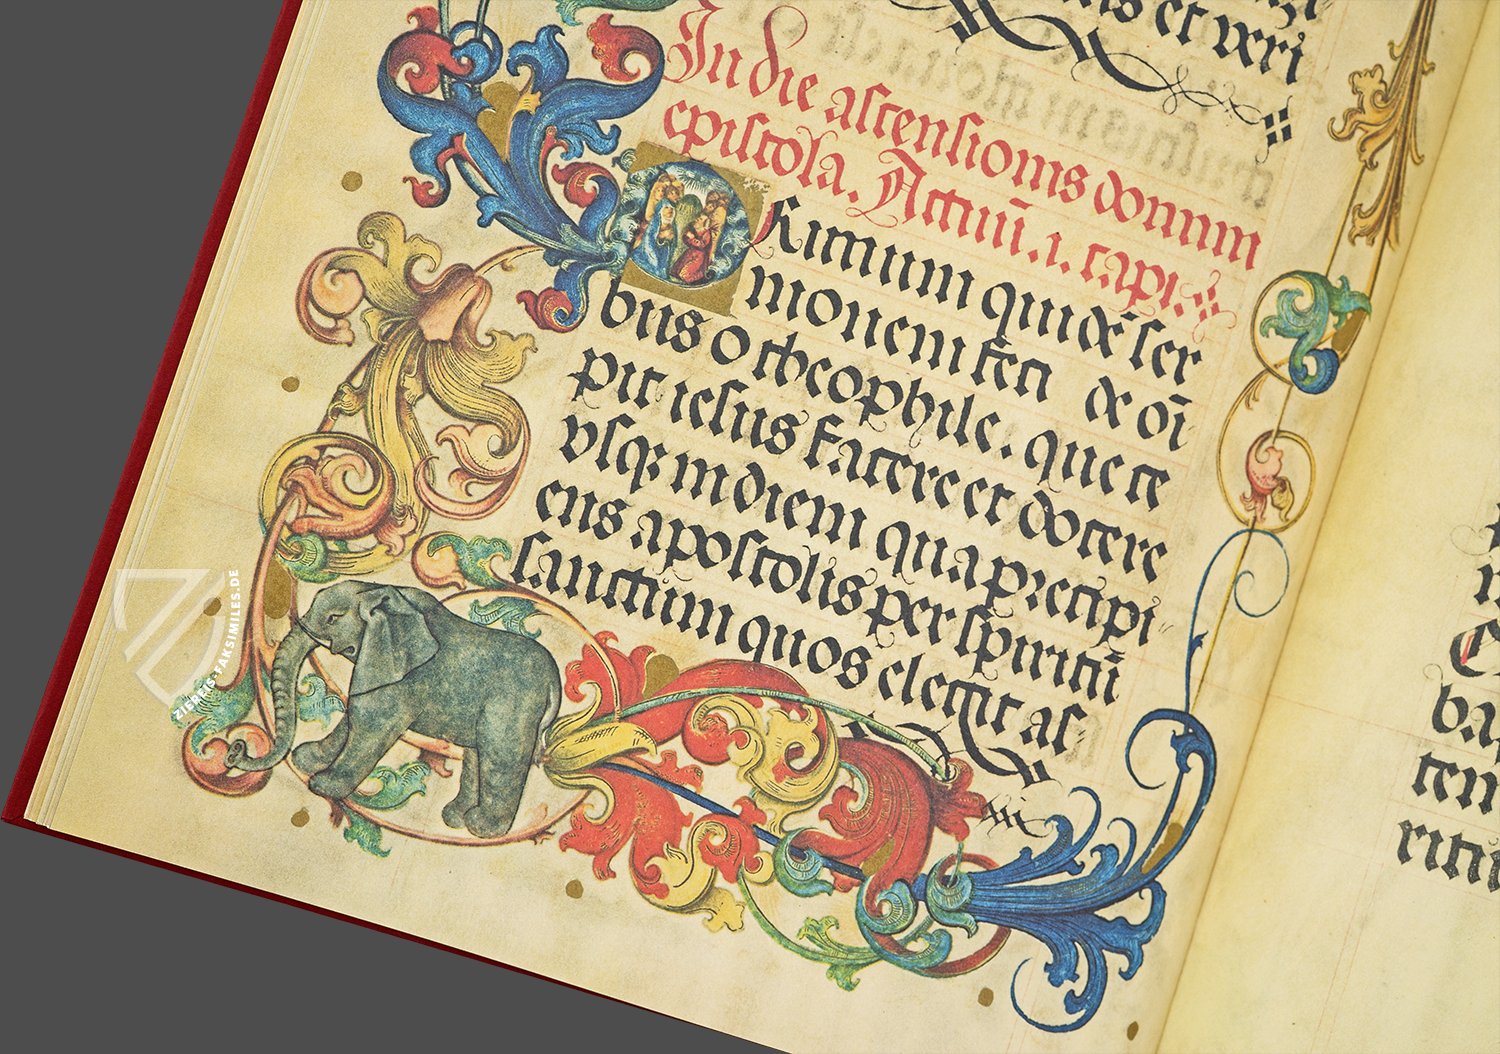 us et vxri
In die ascensionis domini
epistola. Actuū. i. capi.
Rimum quidē ser
monem feci de oī
bus o theophile. que ce
pit iesus facere et docere
vsqꝫ in diem qua precipi
ens apostolis per spiritū
sanctum quos elegit as
xxi
ba
ten
ritu
ZIEREIS-FAKSIMILES.DE